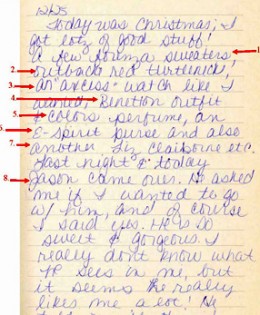 12/25
Today was Christmas; I
got lotz of good stuff!
A few forma sweaters, 1
2. outback red turtleneck,
3. an axcess watch like I
4. wanted, Benetton outfit
5. & colors perfume, an
6. E-spirit purse and also
7. another Liz Claiborne etc.
Last night & today
8. Jason came over. He asked
me if I wanted to go
w/ him, and of course
I said yes. He is so
sweet & gorgeous. I
really don't know what
He sees in me, but
it seems He really
likes me a lot! He